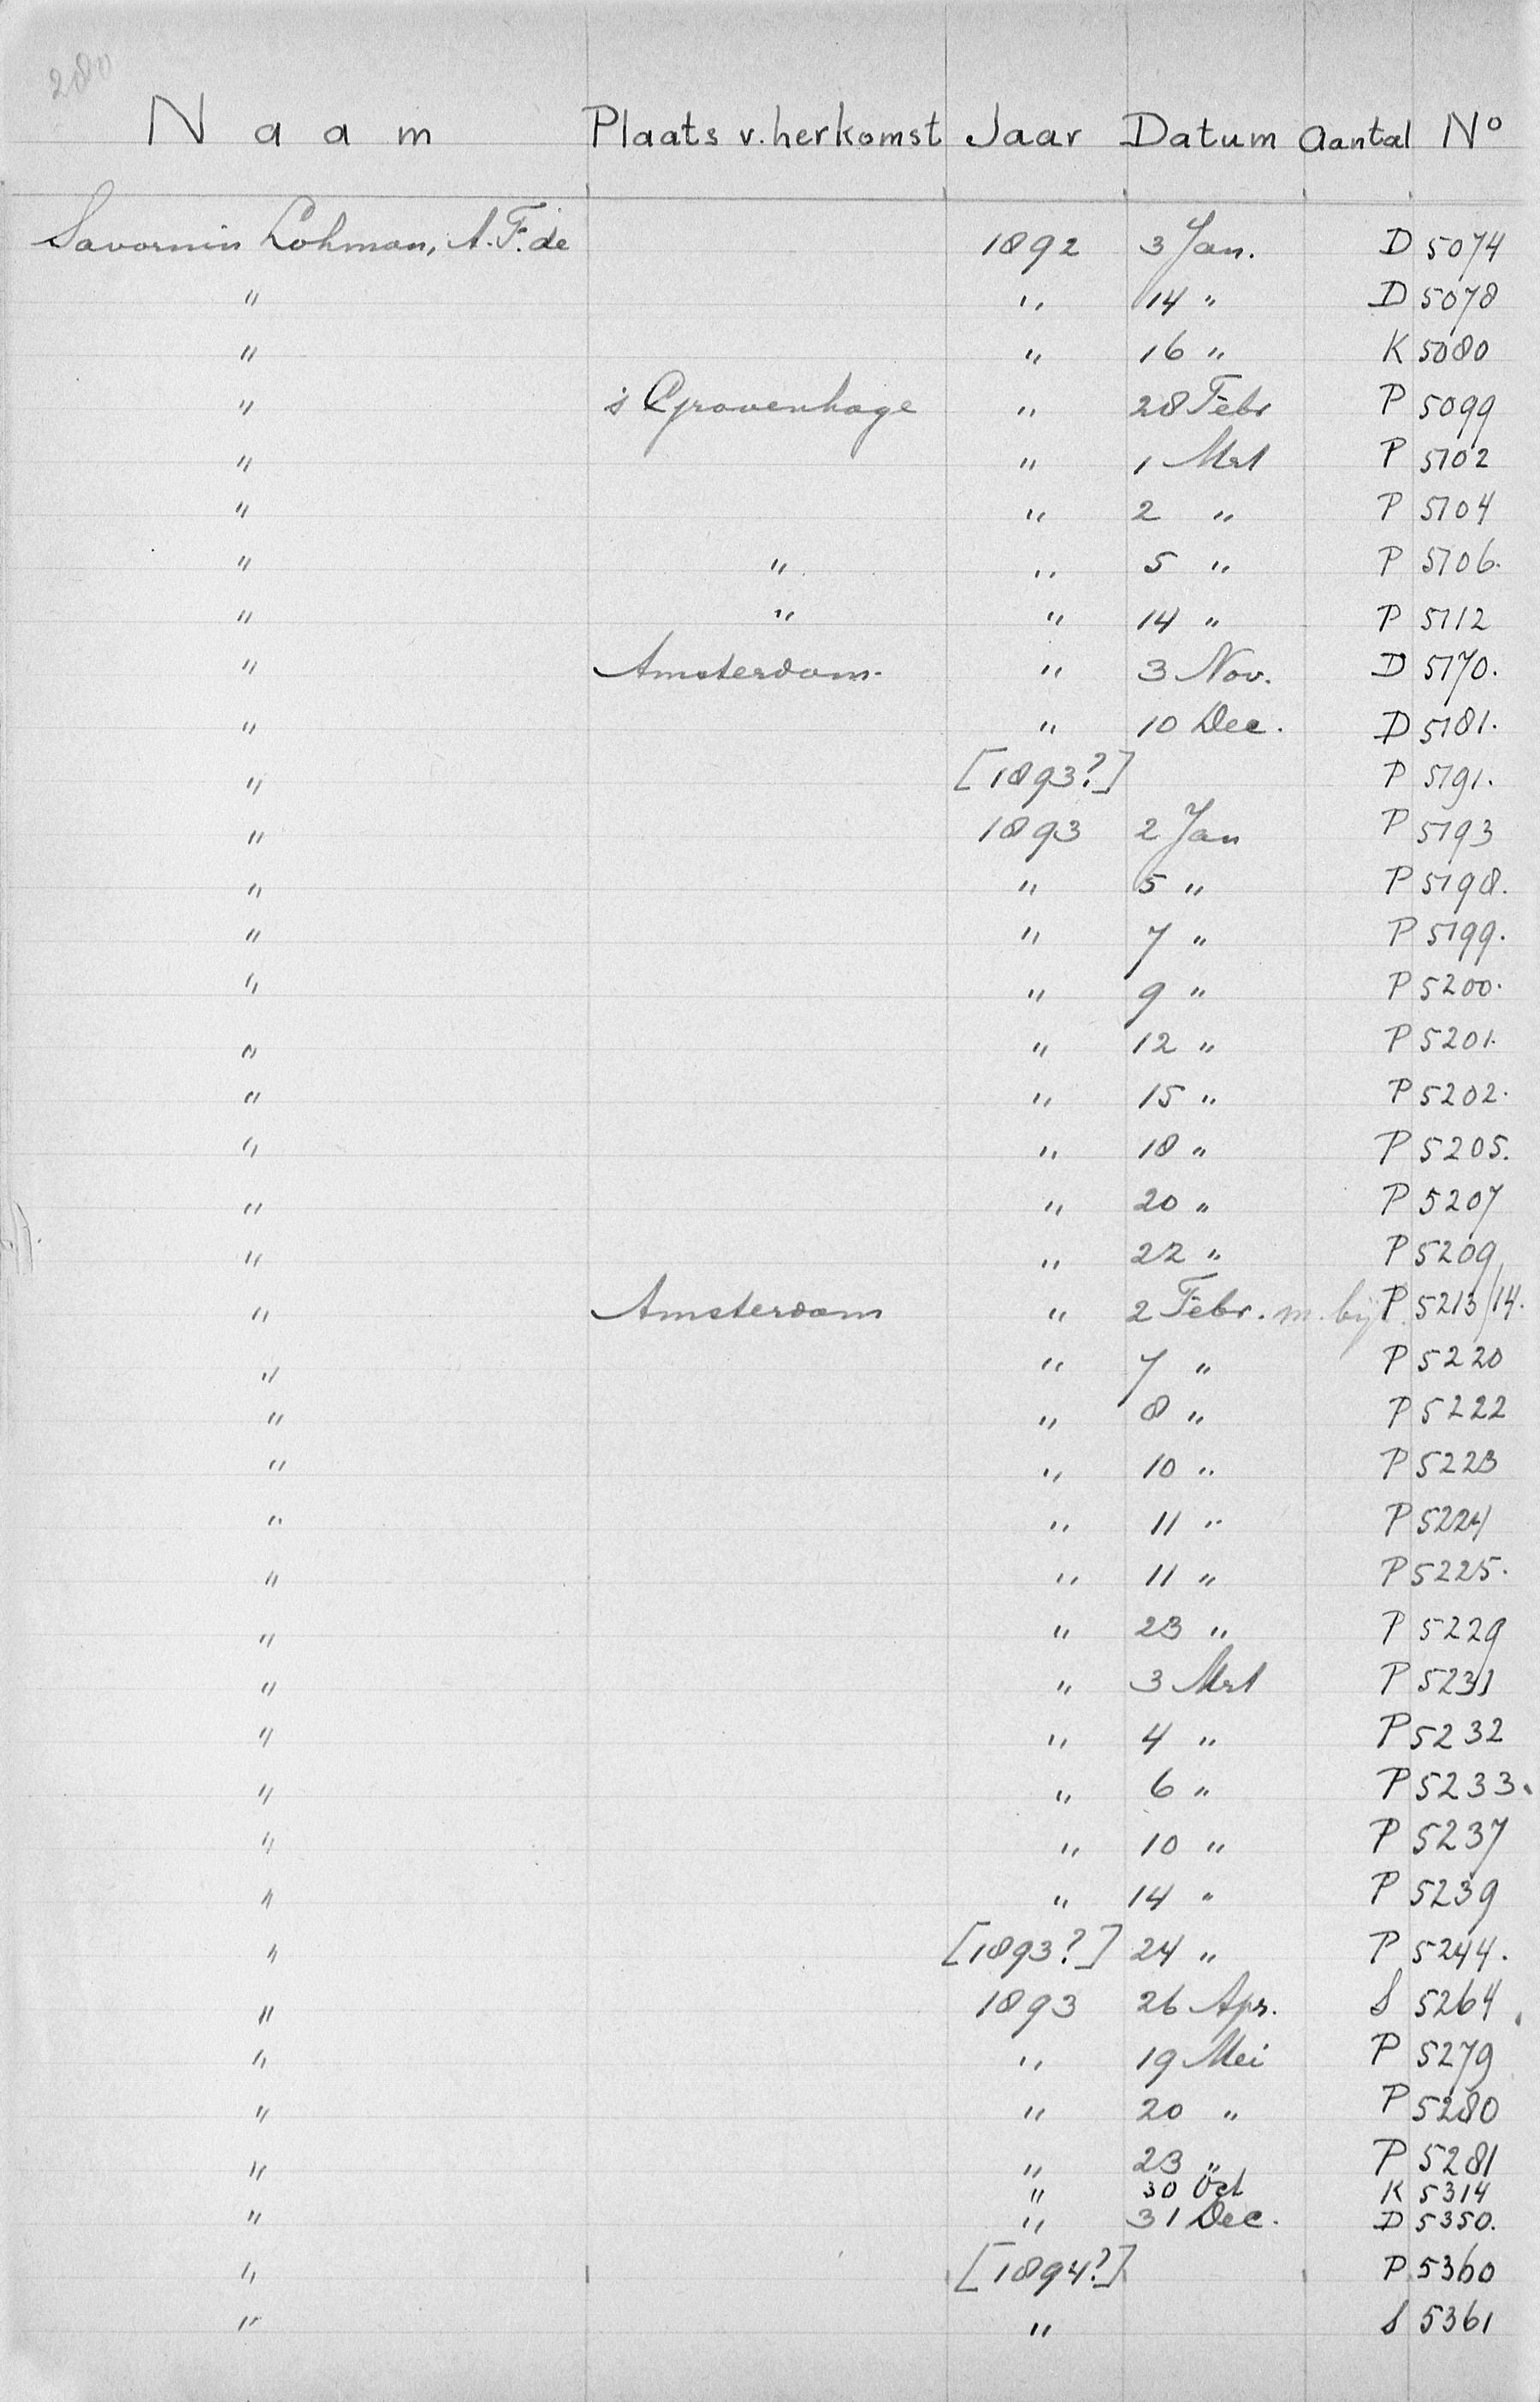 280
Naam Plaats v. herkomst Jaar Datum Aantal No
Savornin Lohman, A.F. de 1892 3 Jan. D 5074
" " 14 " D 5078
" " 16 " K 5080
" 's Gravenhage " 28 Febr P 5099
" " 1 Mrt P 5102
" " 2 " P 5104
" " " 5 " P 5106.
" " " 14 " P 5112
" Amsterdam. " 3 Nov. D 5170.
" " 10 Dec. D 5181.
" [1893?] P 5191.
" 1893 2 Jan P 5193
" " 5 " P 5198.
" " 7 " P 5199.
" " 9 " P 5200.
" " 12 " P 5201.
" " 15 " P 5202.
" " 18 " P 5205.
" " 20 " P 5207
" " 22 " P 5209
" Amsterdam " 2 Febr. m. bijl. P 5213/14.
" " 7 " P 5220
" " 8 " P 5222
" " 10 " P 5223
" " 11 " P 5224
" " 11 " P 5225.
" " 23 " P 5229
" " 3 Mrt P 5231
" " 4 " P 5232
" " 6 " P 5233.
" " 10 " P 5237
" " 14 " P 5239
" [1893?] 24 " P 5244.
" 1893 26 Apr. S 5264
" " 19 Mei P 5279
" " 20 " P 5280
" " 23 " P 5281
" 30 Oct K 5314
" " 31 Dec. D 5350.
" [1894?] P 5360
" " S 5361